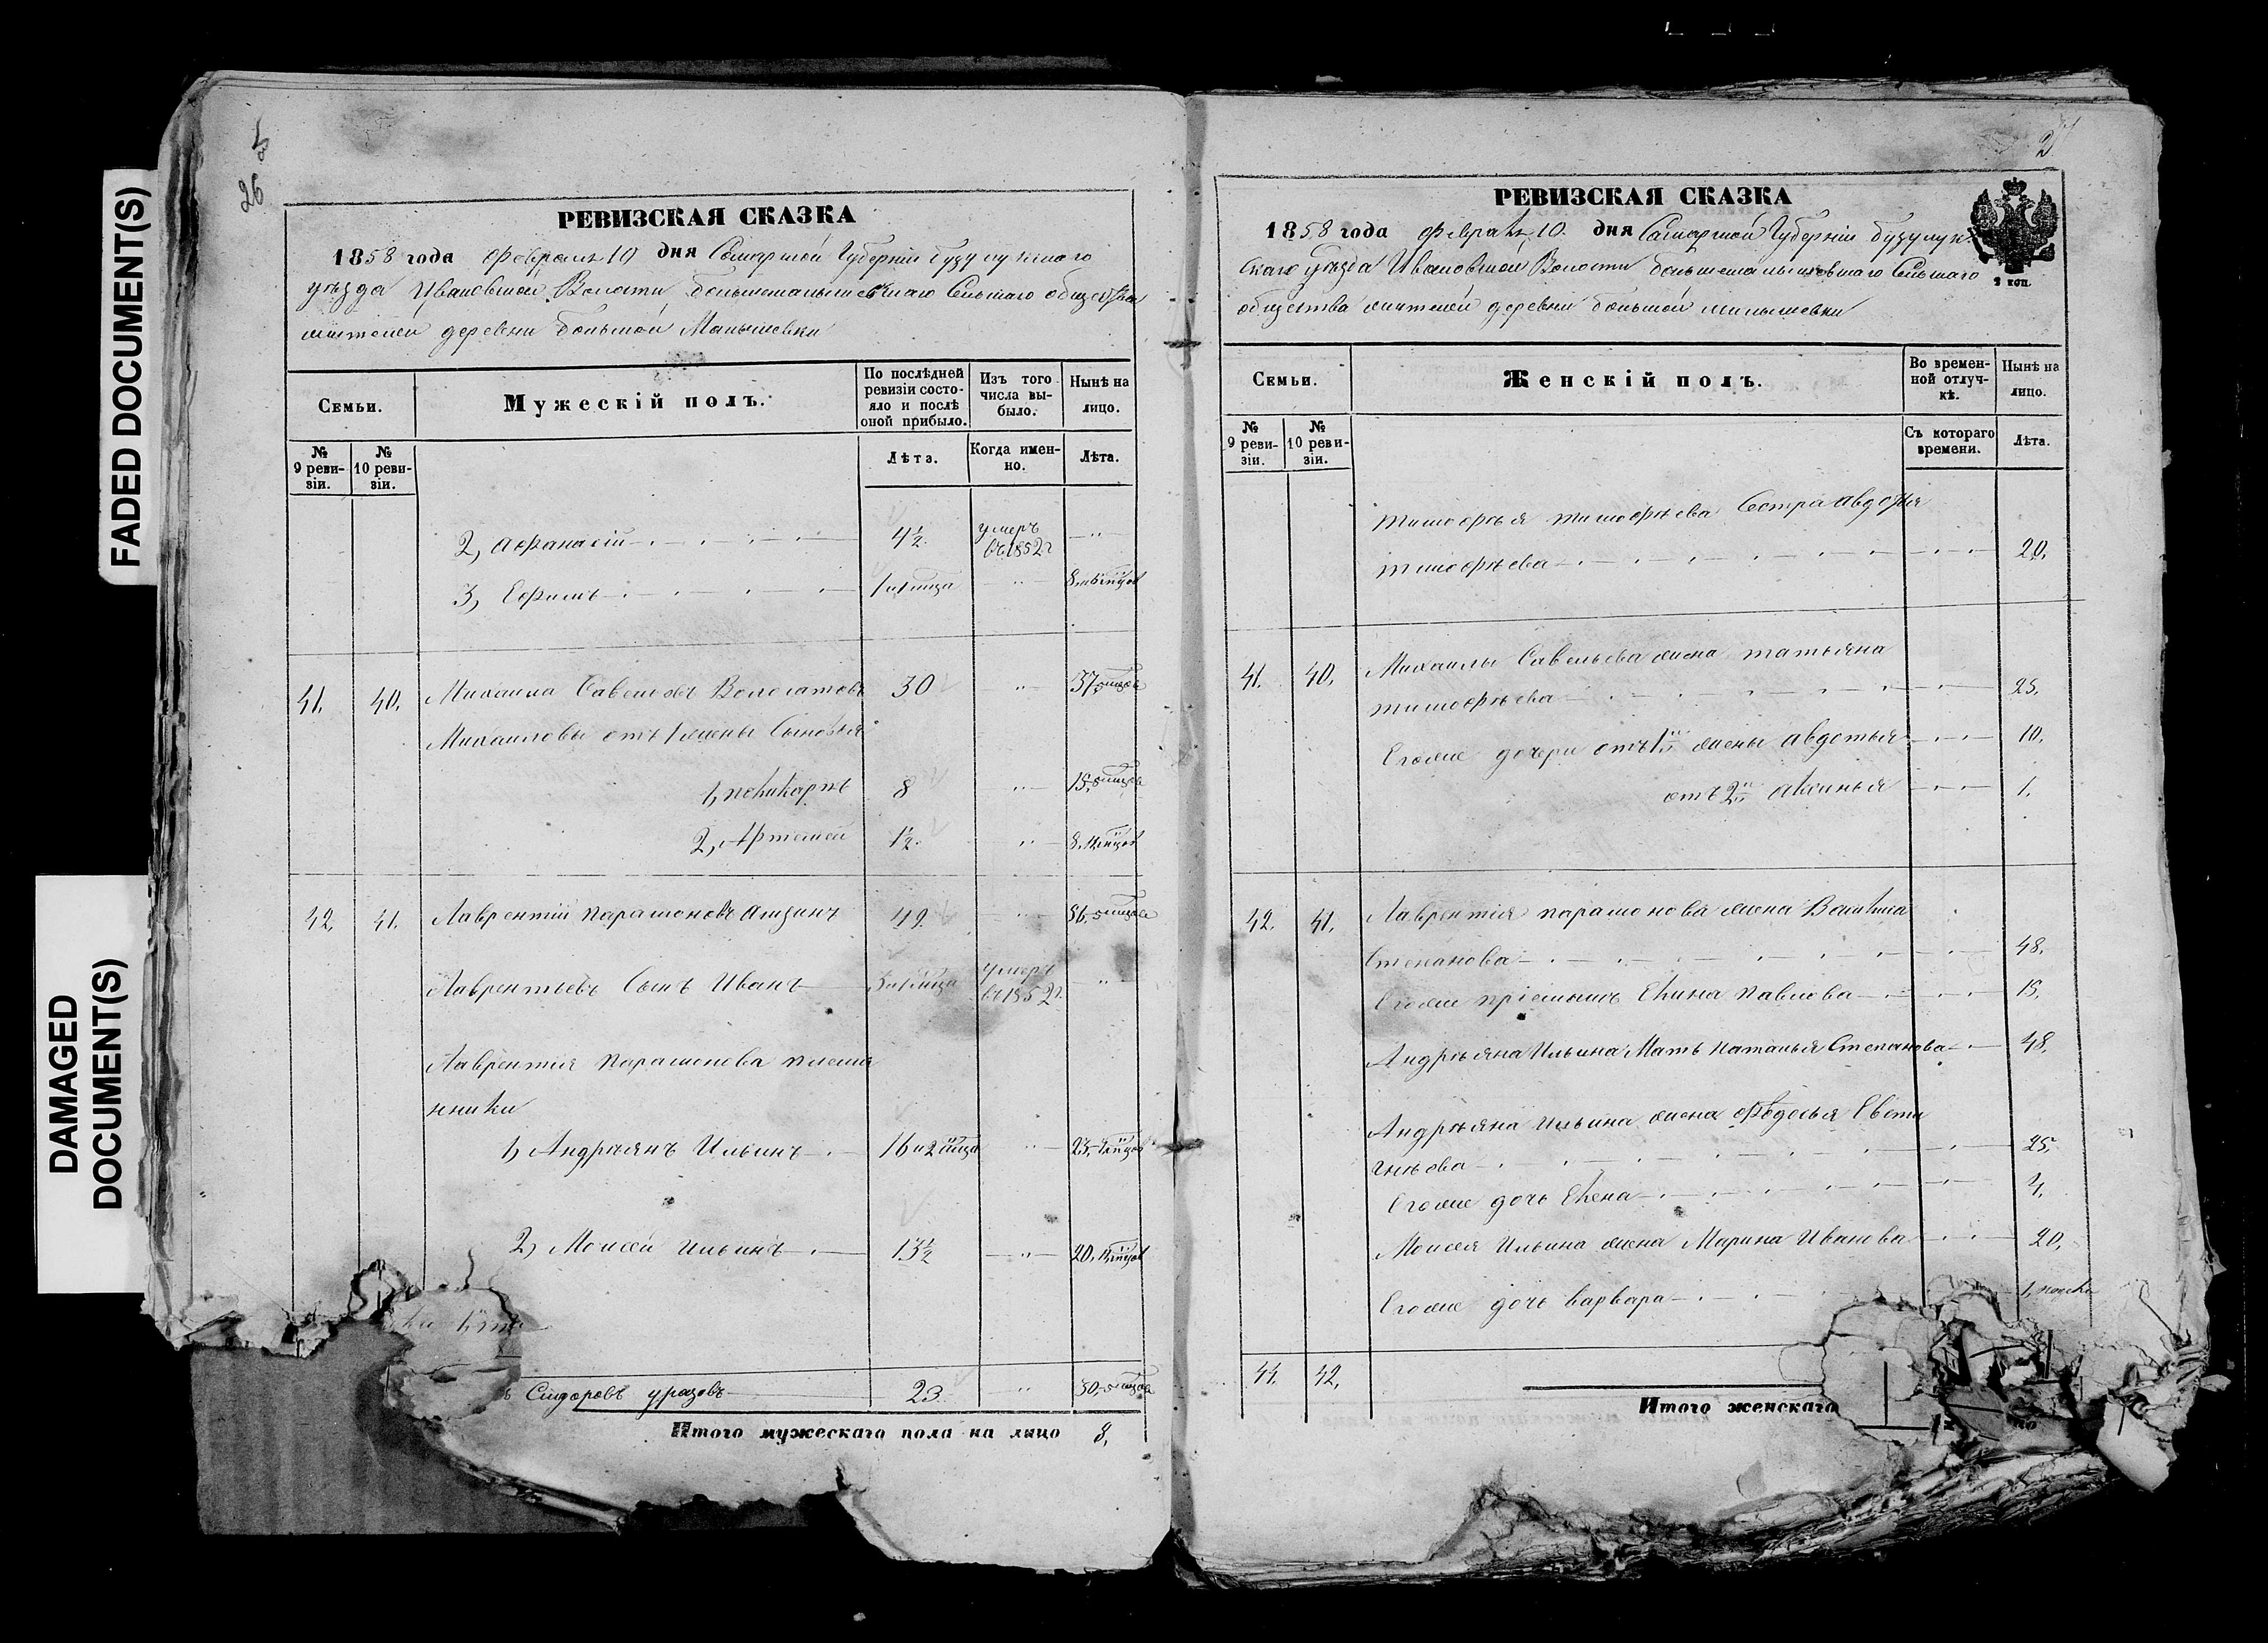 FADED DOCUMENT(S)
DAMAGED
DOCUMENT(S)
26
РЕВИЗСКАЯ СКАЗКА
1858 года Февраля 10 дня Самарской Губерніи Бузулукскаго
уѣзда Ивановской Волости большемалышевскаго Сельскаго общества
жителей деревни большой Малышевки
Семьи.
Мужескій полъ.
По послѣдней
ревизіи состо-
яло и послѣ
оной прибыло.
Изъ того
числа вы-
было.
Нынѣ на
лицо.
№
9 реви-
зіи.
№
10 реви-
зіи.
Лѣта.
Когда имен-
но.
Лѣта.
2, Афанасій 4½ умеръ
въ 1852 г
3, Ефимъ
41. 40. Михаила Савельевъ 30 37
Михаиловы отъ 1 жены Сыновья
1, поликарпъ 8 15
2, Артемей 1½ 8
42. 41. Лаврентій парамоновъ 49 56
Лаврентьевъ Сынъ Иванъ умеръ
въ 1852 г.
Лаврентія Парамонова племя
нники
1, Андреянъ Ильинъ 16 и 2 23
2, Моисей ильинъ 13½ 20
Сидоровъ уразовъ 23 30
Итого мужескаго пола на лицо 8,
РЕВИЗСКАЯ СКАЗКА
1858 года Февраля 10. дня Самарской Губерніи бузулук-
скаго уѣзда Ивановской Волости большемалышевскаго Сельскаго
общества жителей деревни большой малышевки
2 коп.
Семьи.
Женскій полъ.
Во времен-
ной отлуч-
кѣ.
Нынѣ на
лицо.
№
9 реви-
зіи.
№
10 реви-
зіи.
Съ котораго
времени.
Лѣта.
тимофѣя тимофѣева Сестра авдотья
тимофѣева 20.
41. 40. Михаилы Савельева жена татьяна
тимофѣева 25.
Егоже дочери отъ 1й жены авдотья 10.
отъ 2й аксинья 1.
42. 41. Лаврентія парамонова жена Василиса
Степанова 48.
Егоже пріемышъ Елина павлова 15.
Андрѣяна Ильина Мать наталья Степанова 48.
Андрѣяна ильина жена Федосья Евсти
гнѣева 25.
Егоже дочь Елена 4.
Моисея Ильина жена Марина Иванова 20.
Егоже дочь варвара
44. 42.
Итого женскаго